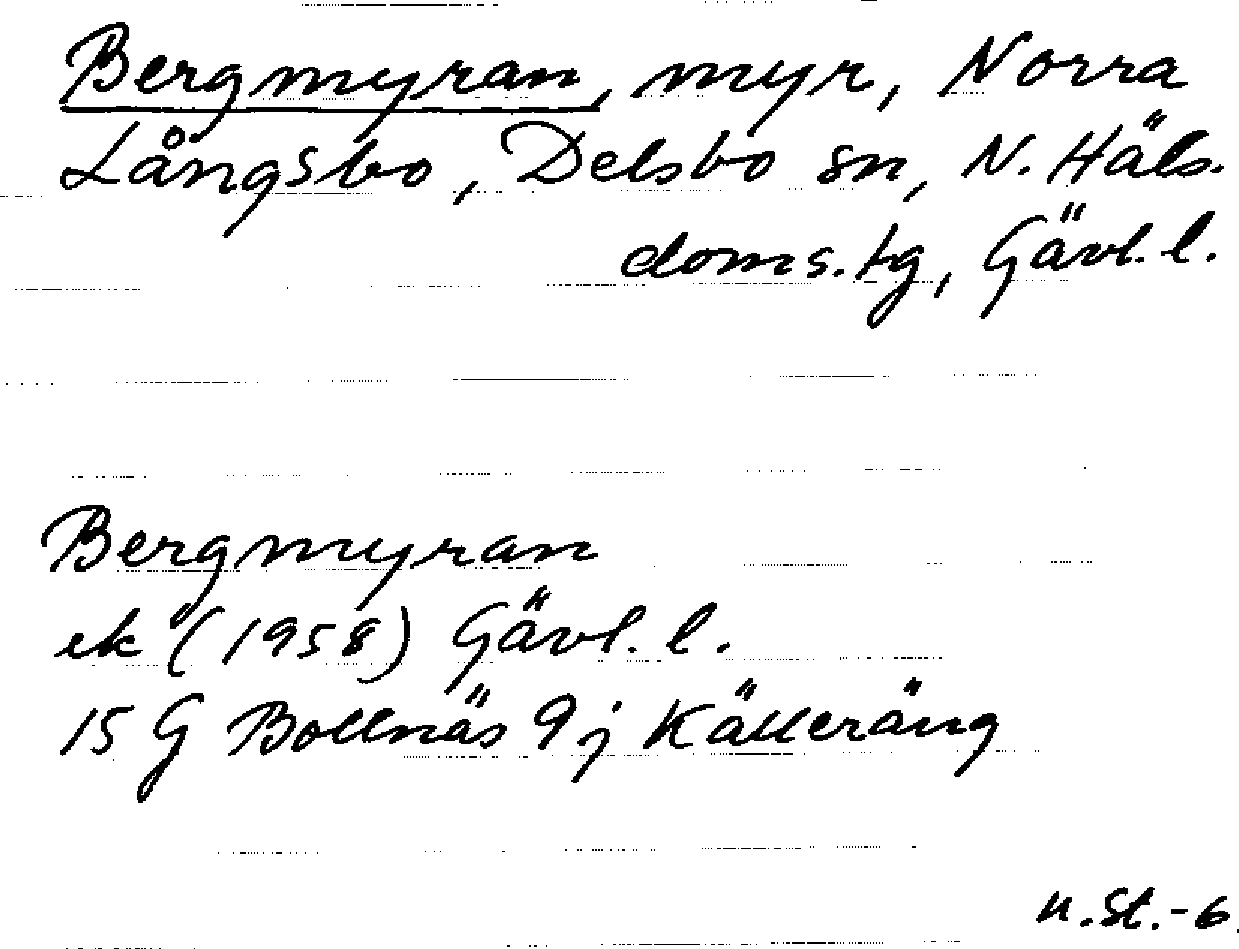 Bergmyran, myr, Norra
Långsbo, Delsbo sn, N. Häls.
doms. tg, Gävl. l.
Bergmyran
ek (1958) Gävl. l.
15 G Bollnäs 9 j Källeräng